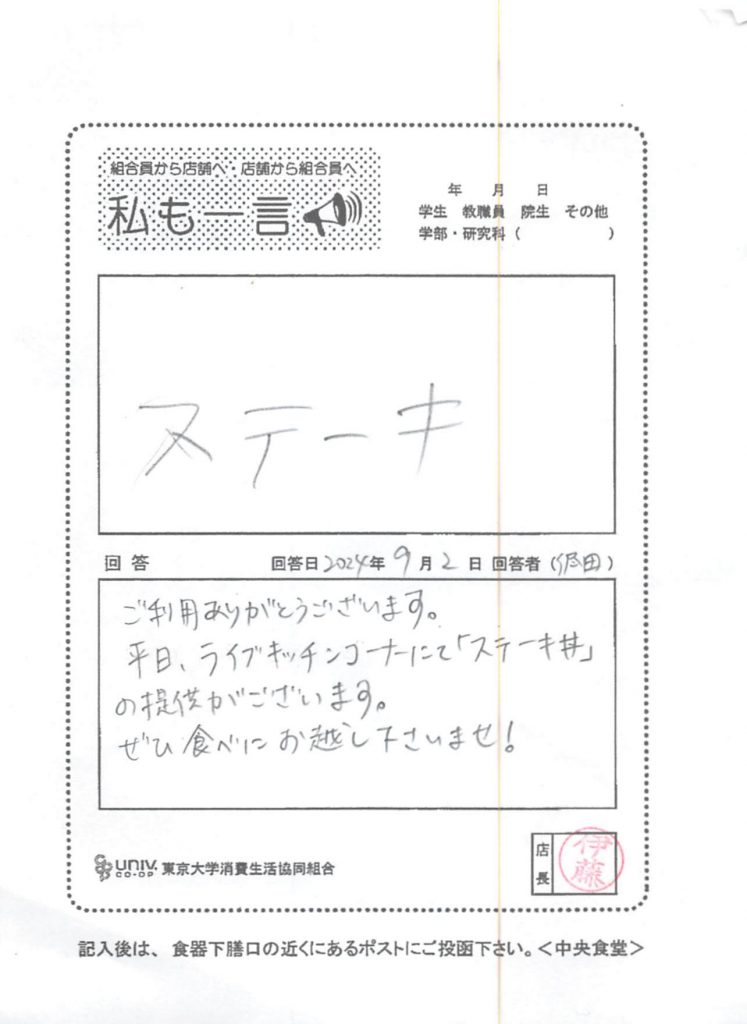 組合員から店舗へ・店舗から組合員へ
私も一言
年 月 日
学生 教職員 院生 その他
学部・研究科 ( )
ステーキ
回答 回答日 2024年 9月 2日 回答者 ( 田)
ご利用ありがとうございます。
平日、ライブキッチンコーナーにて「ステーキ丼」
の提供がございます。
ぜひ食べにお越し下さいませ!
UNIV. CO-OP 東京大学消費生活協同組合
店長 伊藤
記入後は、食器下膳口の近くにあるポストにご投函下さい。<中央食堂>